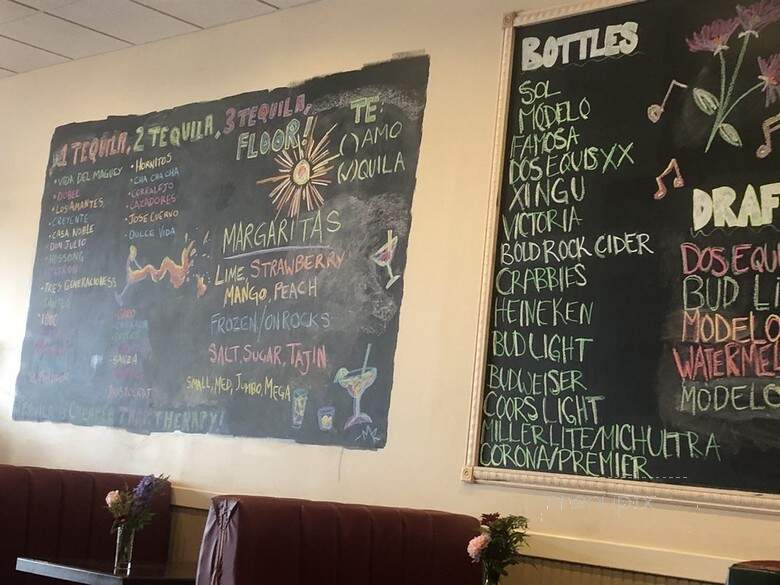 1 TEQUILA, 2 TEQUILA, 3 TEQUILA,
FLOOR!
• VIDA DEL MAGUEY
• DOBEL
• LOS AMANTES
• CREYENTE
• CASA NOBLE
• DON JULIO
• HUSSONG
• TRES GENERACIONES
• 1800
• HORNITOS
• CHA CHA CHA
• CORRALEJO
• CAZADORES
• JOSE CUERVO
• DOLCE VIDA
• SAUZA
TE:
( ) AMO
(✓)QUILA
MARGARITAS
LIME, STRAWBERRY
MANGO, PEACH
FROZEN/ON ROCKS
SALT, SUGAR, TAJIN
SMALL, MED, JUMBO, MEGA
TEQUILA IS CHEAPER THAN THERAPY!
-MK
BOTTLES
SOL
MODELO
FAMOSA
DOS EQUIS XX
XINGU
VICTORIA
BOLD ROCK CIDER
CRABBIES
HEINEKEN
BUD LIGHT
BUDWEISER
COORS LIGHT
MILLER LITE/MICH ULTRA
CORONA/PREMIER
DRAF
DOS EQU
BUD LI
MODELO
WATERMEL
MODELO